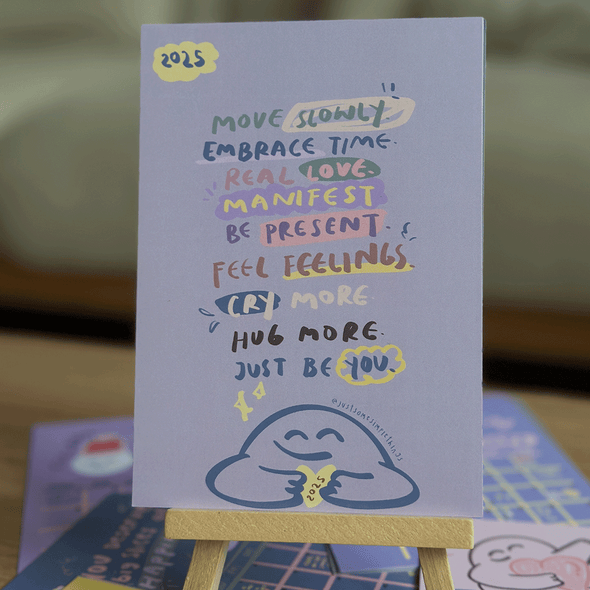 2025
MOVE SLOWLY.
EMBRACE TIME.
REAL LOVE.
MANIFEST
BE PRESENT.
FEEL FEELINGS.
CRY MORE.
HUG MORE.
JUST BE YOU.
@justsomesimplethings
2025
YOU
BIG
HAPP